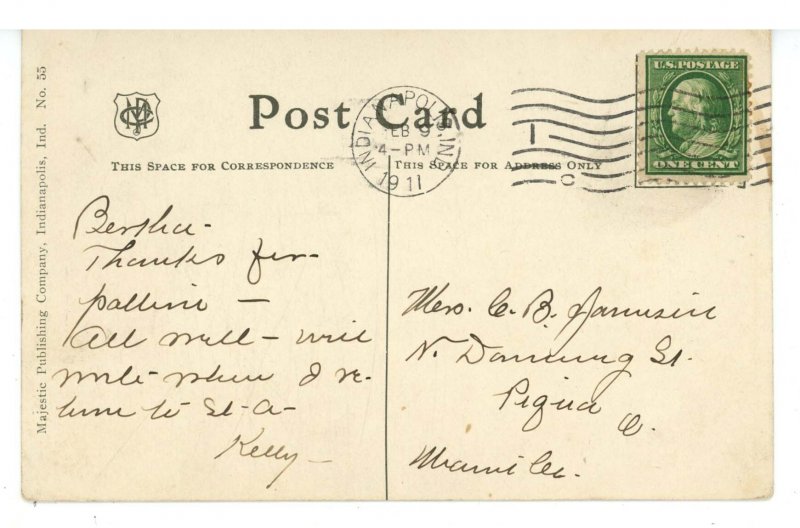 Majestic Publishing Company, Indianapolis, Ind. No. 55
Post Card
INDIANAPOLIS, IND.
FEB 9
4-PM
1911
1
C
U.S. POSTAGE
ONE CENT
THIS SPACE FOR CORRESPONDENCE
THIS SPACE FOR ADDRESS ONLY
Bertha-
Thanks for
pattern —
All well - will
write when I re-
turn to St. A-
Kelly -
Mrs. C. B. Jamison
N. Downing St.
Piqua
O.
Miami Co.